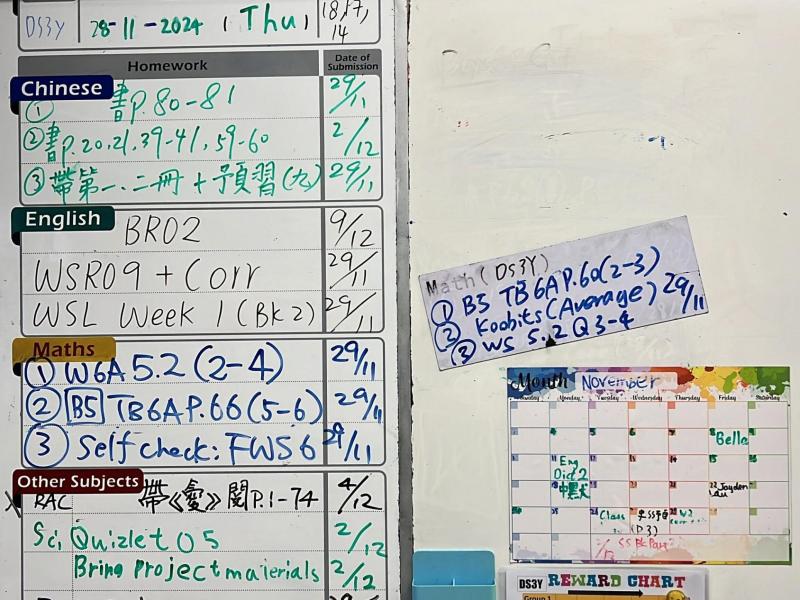 DS3Y 28-11-2024 (Thu) 18,17,
14
Homework Date of Submission
Chinese
① 書P.80-81 29/11
②書P.20,21,39-41,59-60 2/12
③帶第一.二冊+預習(九) 29/11
English
BR02 9/12
WSR09 + Corr 29/11
WSL Week 1 (Bk 2) 29/11
Maths
① W6A 5.2 (2-4) 29/11
② B5 TB6A P.66 (5-6) 29/11
③ Self check: FWS 6 29/11
Other Subjects
RAC 帶《愛》閱P.1-74 4/12
Sci Quizlet 05 2/12
Bring Project materials 2/12
Math (DS3Y)
① B5 TB 6A P.60 (2-3)
② Koobits (Average) 29/11
③ WS 5.2 Q3-4
Month November
Sunday Monday Tuesday Wednesday Thursday Friday Saturday
Bella
Eng
Dict 2
Jayden
Lau
Class
(P.3)
DS3Y REWARD CHART
Group 1